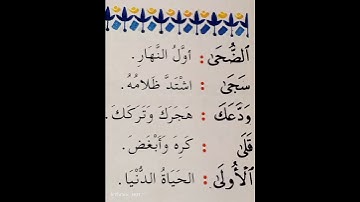 ٱلضُّحَىٰ : أَوَّلُ النَّهَارِ.
سَجَىٰ : اشْتَدَّ ظَلَامُهُ.
وَدَّعَكَ : هَجَرَكَ وَتَرَكَكَ.
قَلَىٰ : كَرِهَ وَأَبْغَضَ.
ٱلْأُولَىٰ : الحَيَاةُ الدُّنْيَا.